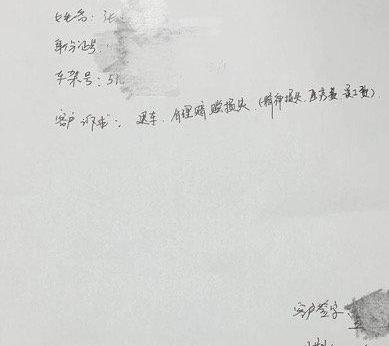 姓名：张
身份证号：
车架号：5
客户诉求：退车、合理赔偿损失（精神损失、医疗费、误工费）
客户签字：